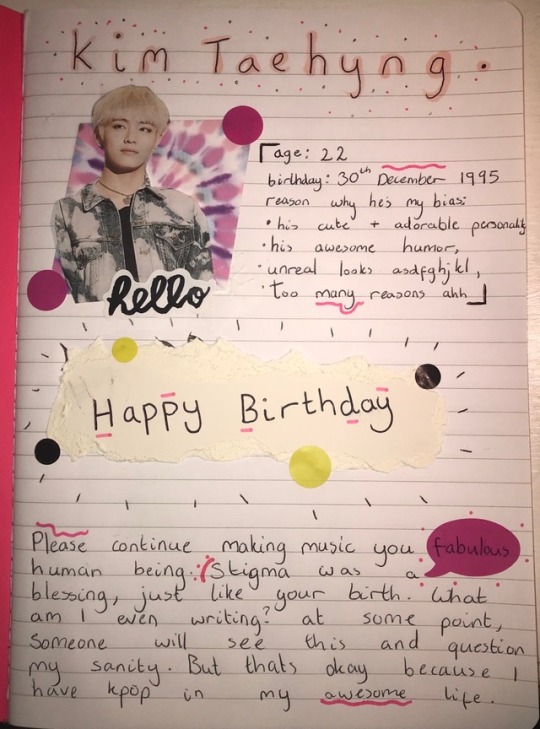 Kim Taehyng.
age: 22
birthday: 30th December 1995
reason why he's my bias:
• his cute + adorable personality
• his awesome humor,
• unreal looks asdfghjkl,
• too many reasons ahh
hello
Happy Birthday
Please continue making music you fabulous
human being. Stigma was a
blessing, just like your birth. What
am I even writing? at some point,
Someone will see this and question
my sanity. But thats okay because I
have kpop in my awesome life.